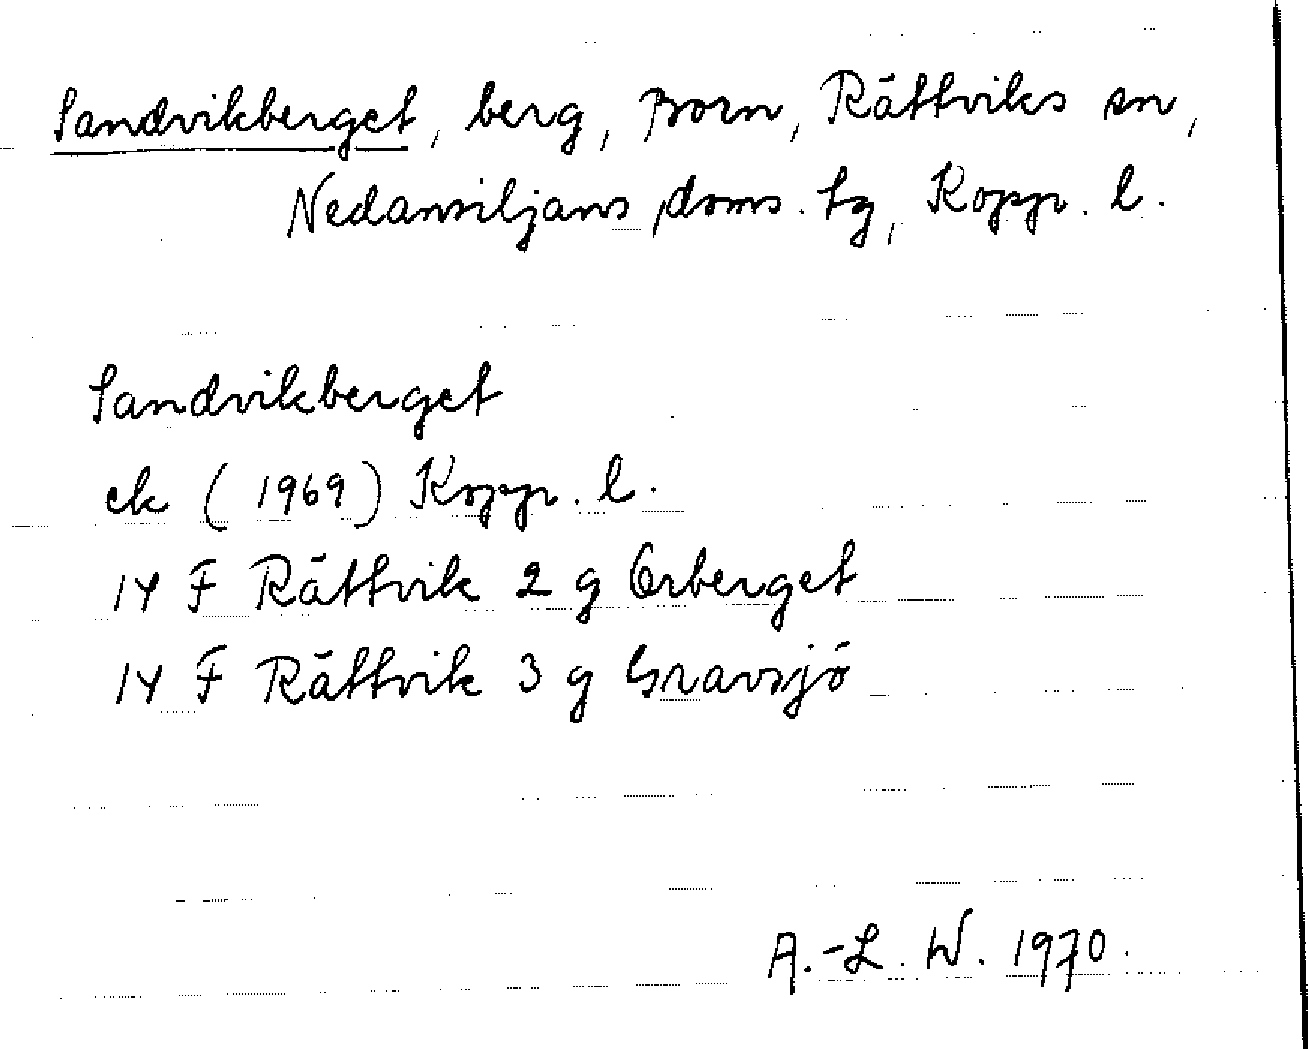 Sandvikberget, berg, Born, Rättviks sn,
Nedansiljans doms. tg, Kopp. l.
Sandvikberget
ek (1969) Kopp. l.
14 F Rättvik 2 g Orberget
14 F Rättvik 3 g Gravsjö
A.-L. W. 1970.